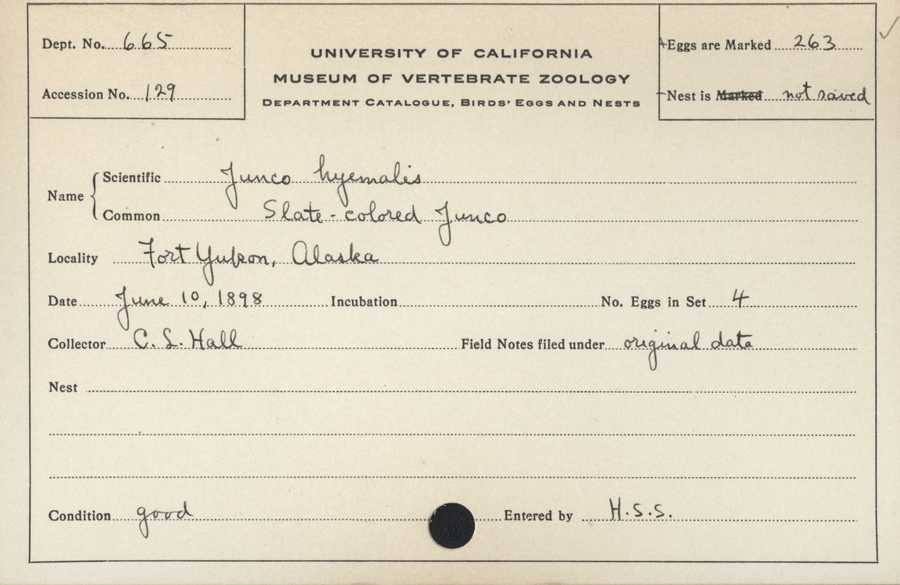 Dept. No. 665
Accession No. 129
UNIVERSITY OF CALIFORNIA
MUSEUM OF VERTEBRATE ZOOLOGY
DEPARTMENT CATALOGUE, BIRDS' EGGS AND NESTS
Eggs are Marked 263
Nest is Marked not saved
Name
Scientific Junco hyemalis
Common Slate-colored Junco
Locality Fort Yukon, Alaska
Date June 10, 1898 Incubation No. Eggs in Set 4
Collector C. L. Hall Field Notes filed under original data
Nest
Condition good Entered by H.S.S.